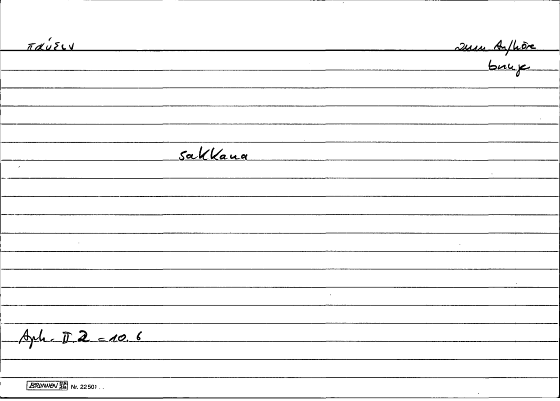 παύειν
zum Aufhören
bringen
sakkana
Aph. II 2 = 10. 6
BRUNNEN Nr. 22501